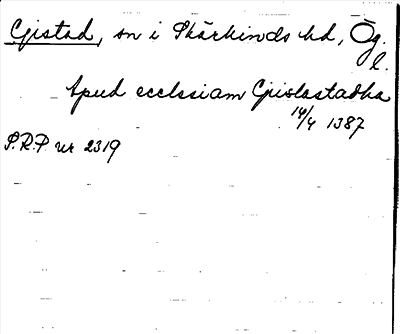 Gistad, sn i Skärkinds hd, Ög.
l.
Apud ecclesiam Gislastadha
14/4 1387
S.R.P. nr 2319